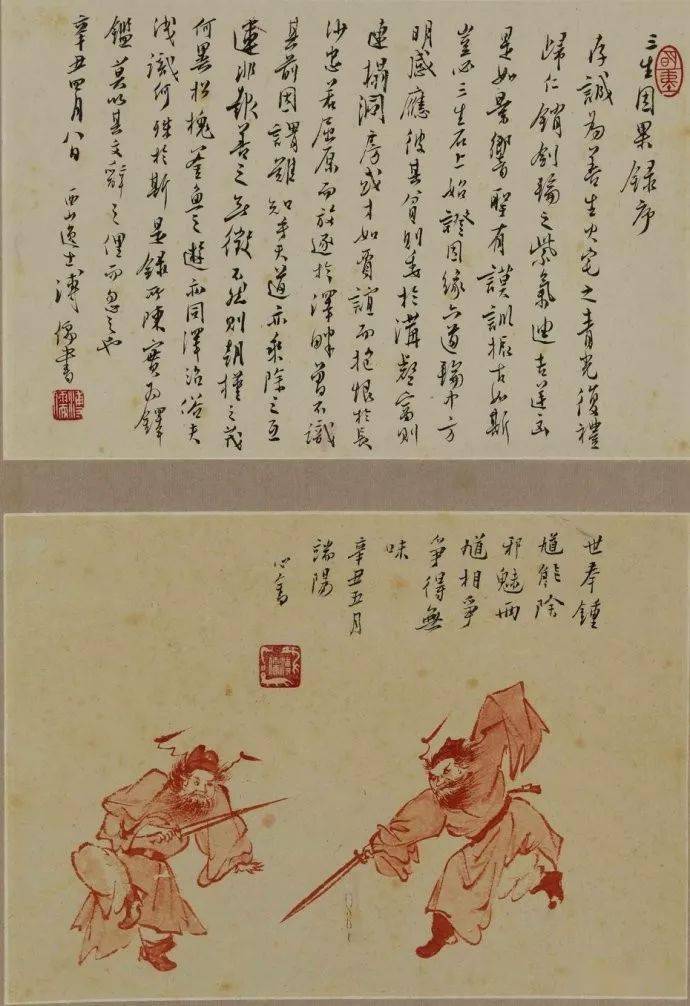 三生因果錄序
存誠為善生火宅之青光復禮
歸仁銷劍輪之紫氣迪吉逆凶
是如景響聖有謨訓振古如斯
豈必三生石上始證因緣六道輪中方
明感應彼其貧則委於溝壑富則
連洞房或才如賈誼而抱恨於長
沙忠若屈原而放逐於澤畔曾不識
其前因謂難知乎天道亦乘除之互
運非報善之無徵不然則朝槿之茂
何異松槐釜魚之遊亦同澤俗夫
淺識何殊於斯是錄所陳實為鐸
鑑莫以其文辭之俚而忽之也
辛丑四月八日 西山逸士溥儒書
溥儒
世奉鍾
馗能除
邪魅兩
馗相爭
爭得無
味
辛丑五月
端陽
心畬
溥儒